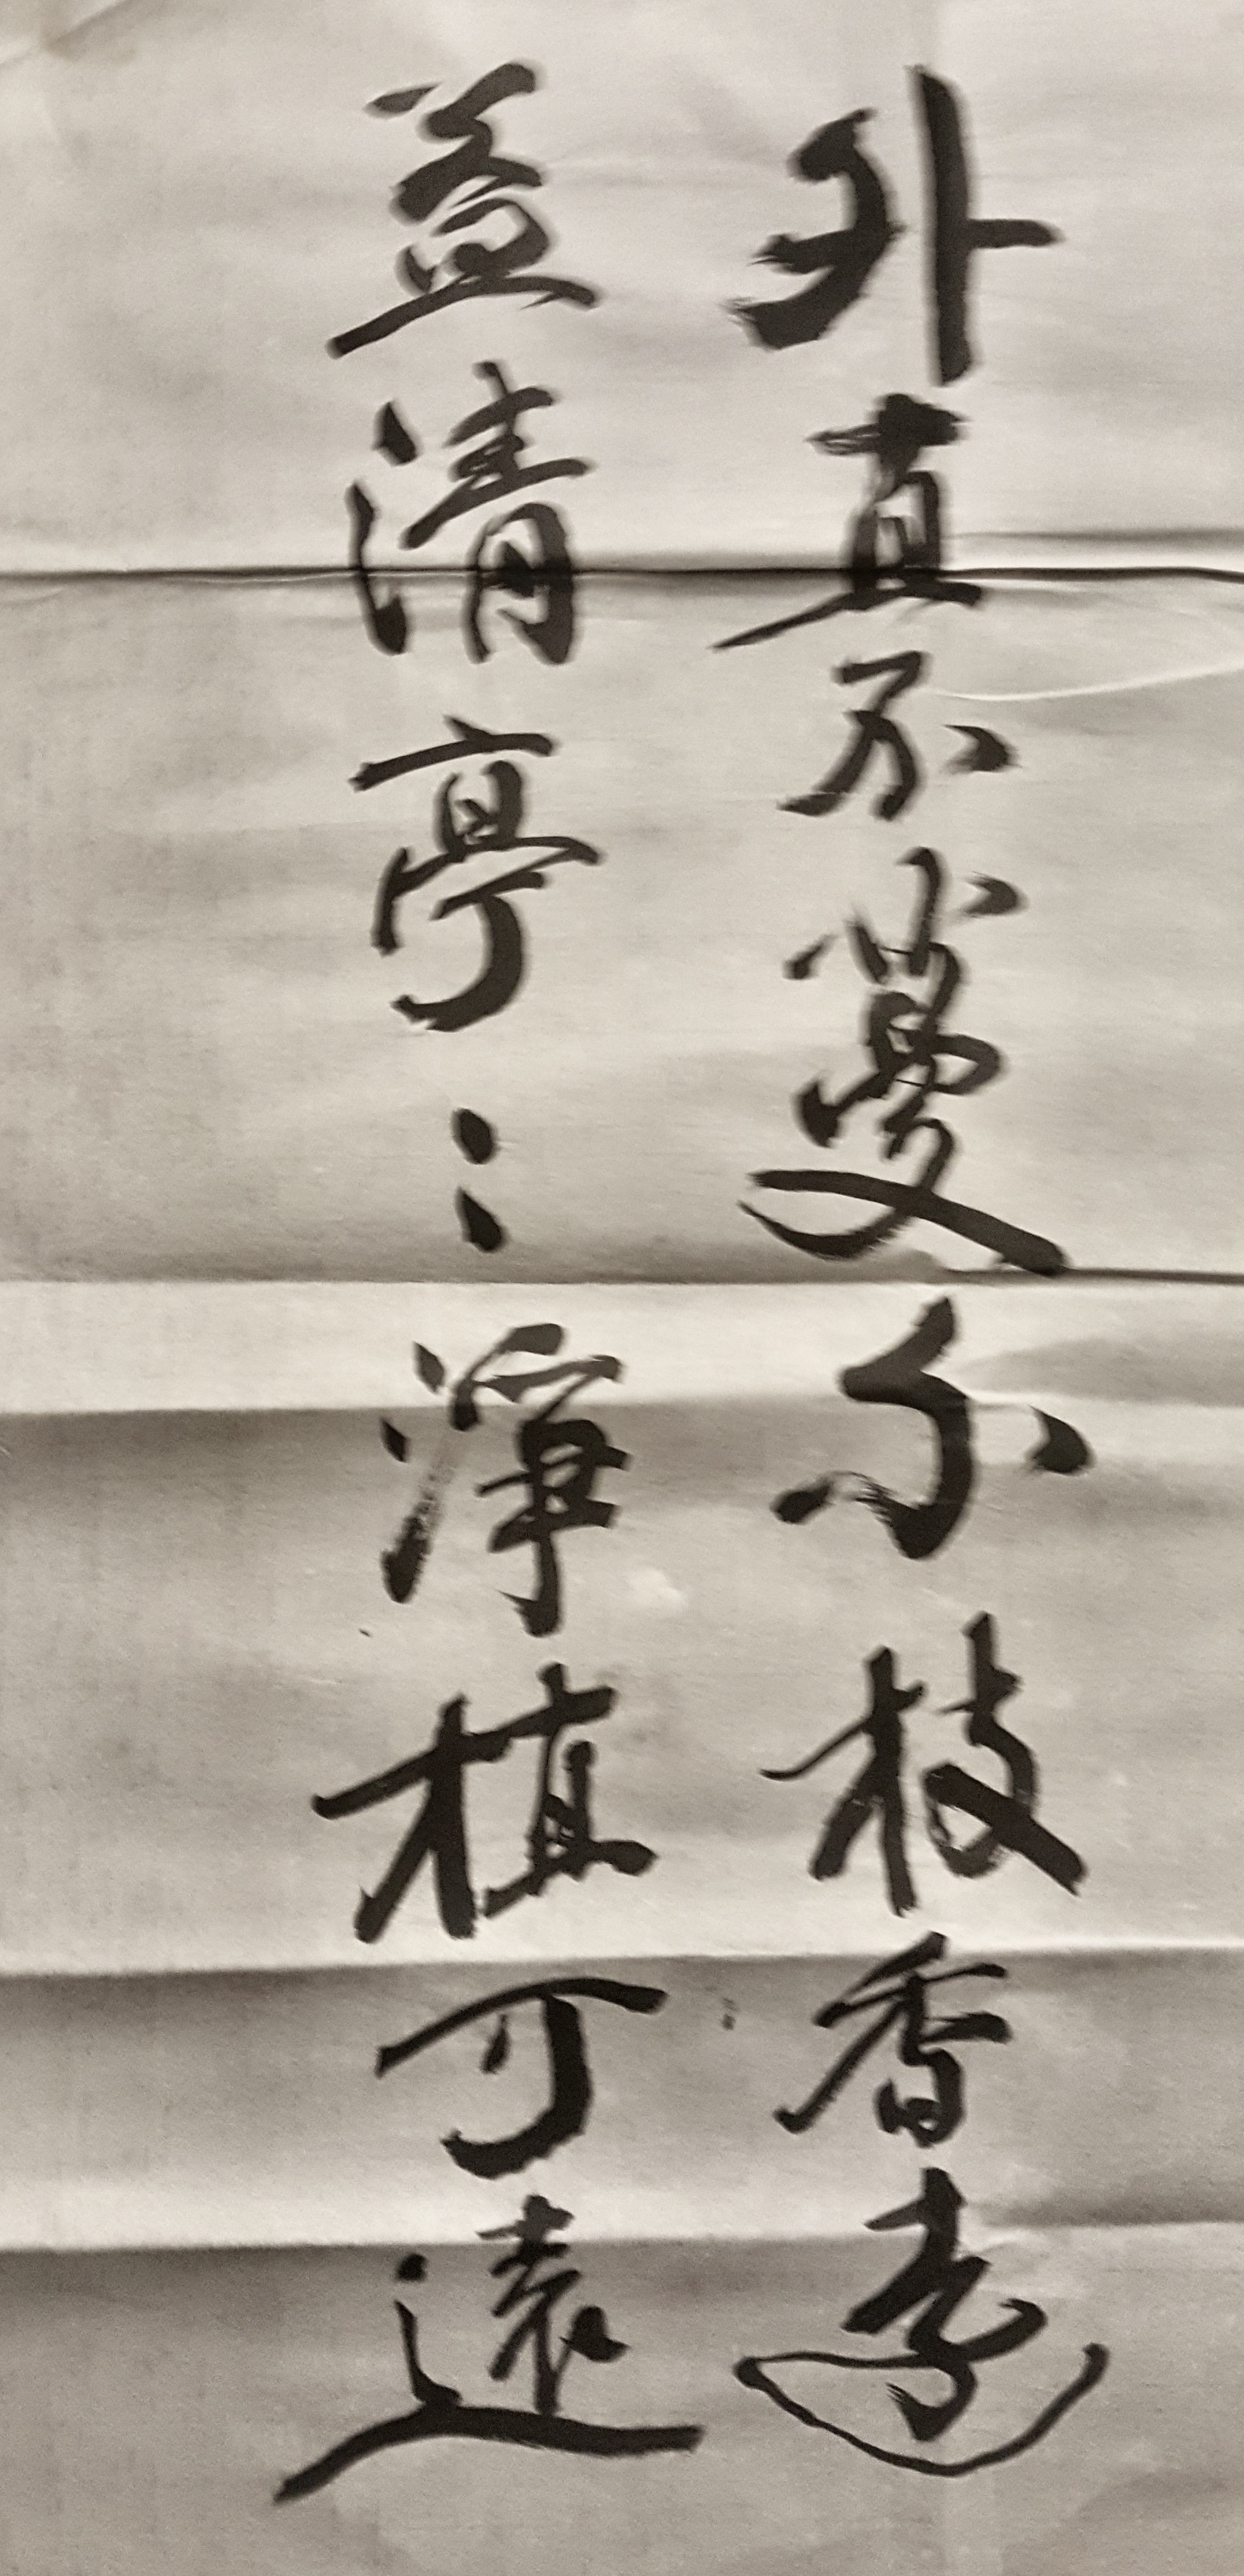 外直不蔓不枝香遠
益清亭〻淨植可遠